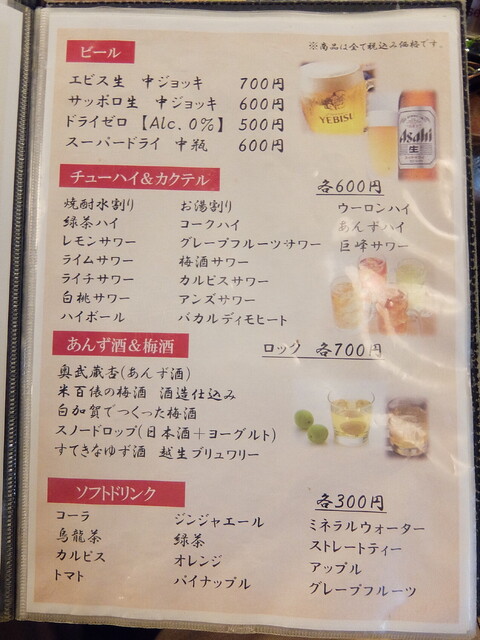 ビール
※商品は全て税込み価格です。
エビス生 中ジョッキ 700円
サッポロ生 中ジョッキ 600円
ドライゼロ【Alc.0%】 500円
スーパードライ 中瓶 600円
YEBISU
Asahi
生
チューハイ&カクテル 各600円
焼酎水割り お湯割り ウーロンハイ
緑茶ハイ コークハイ あんずハイ
レモンサワー グレープフルーツサワー 巨峰サワー
ライムサワー 梅酒サワー
ライチサワー カルピスサワー
白桃サワー アンズサワー
ハイボール バカルディモヒート
あんず酒&梅酒 ロック 各700円
奥武蔵杏(あんず酒)
米百俵の梅酒 酒造仕込み
白加賀でつくった梅酒
スノードロップ(日本酒+ヨーグルト)
すてきなゆず酒 越生ブリュワリー
ソフトドリンク 各300円
コーラ ジンジャエール ミネラルウォーター
烏龍茶 緑茶 ストレートティー
カルピス オレンジ アップル
トマト パイナップル グレープフルーツ